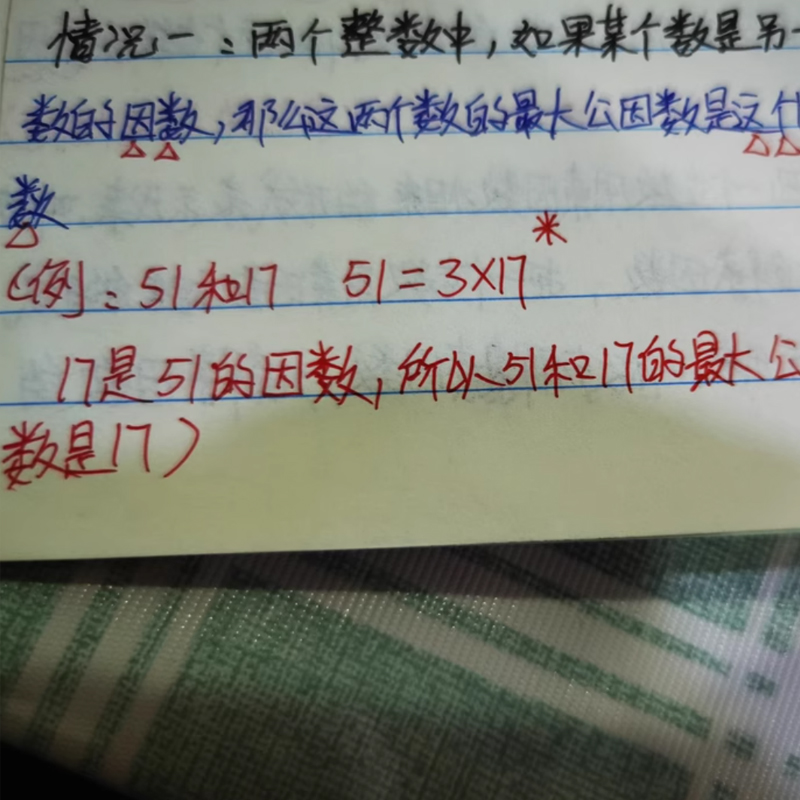 情况一：两个整数中，如果某个数是另一
数的因数，那么这两个数的最大公因数是这个
数
(例：51和17 51=3×17
17是51的因数，所以51和17的最大公
数是17)